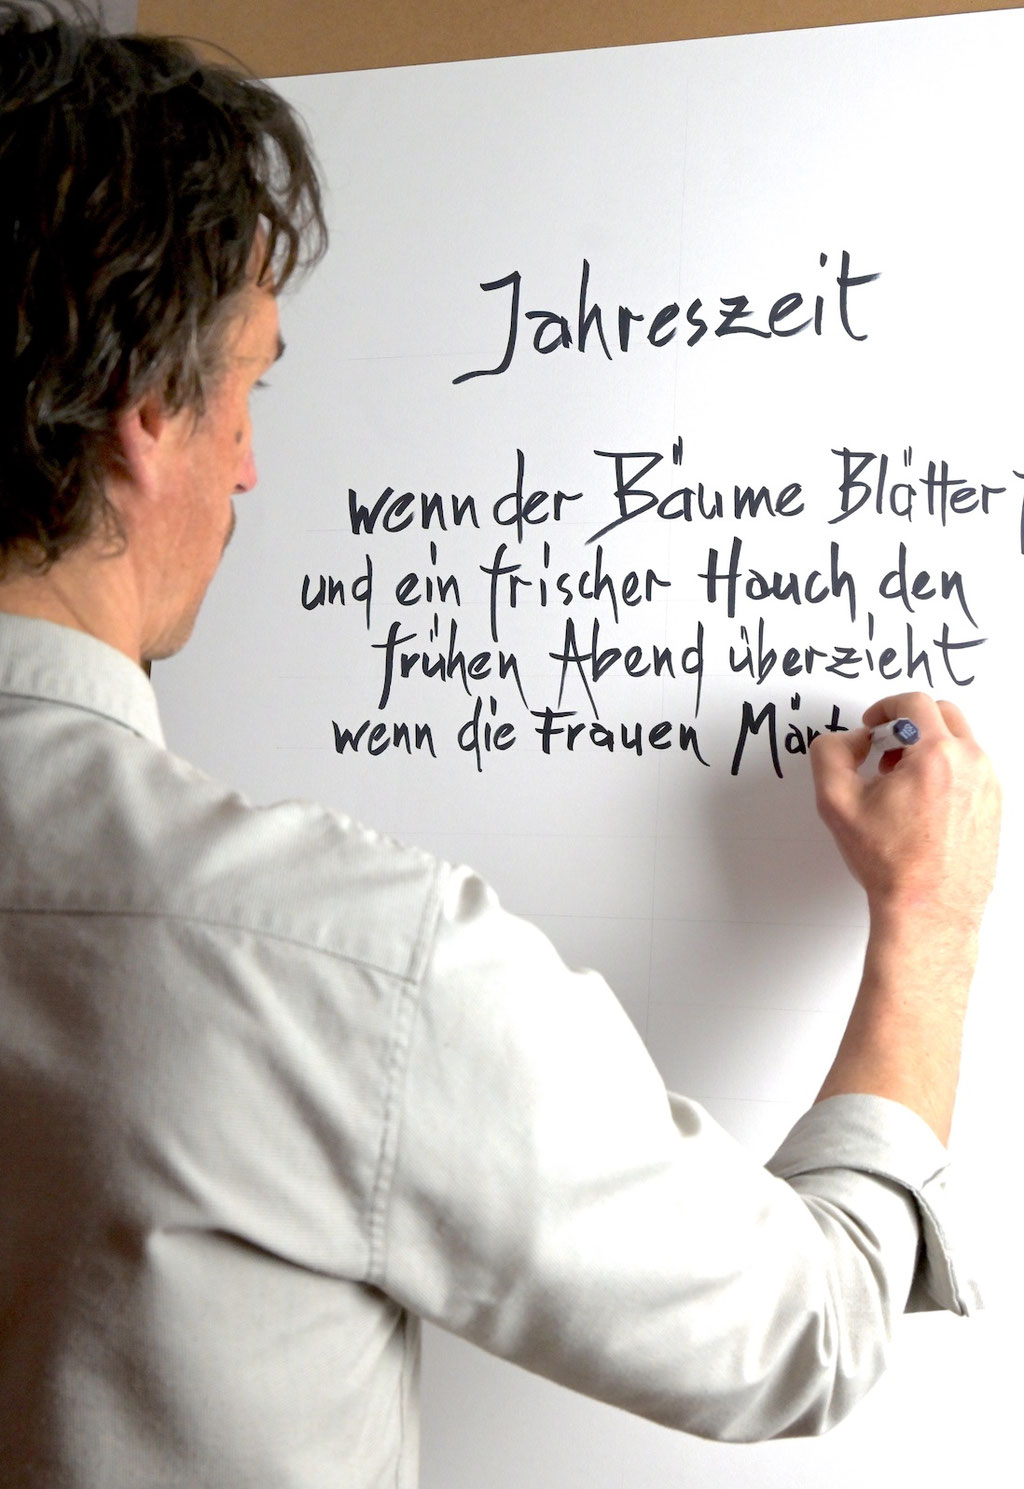 Jahreszeit
wenn der Bäume Blätter
und ein frischer Hauch den
frühen Abend überzieht
wenn die Frauen